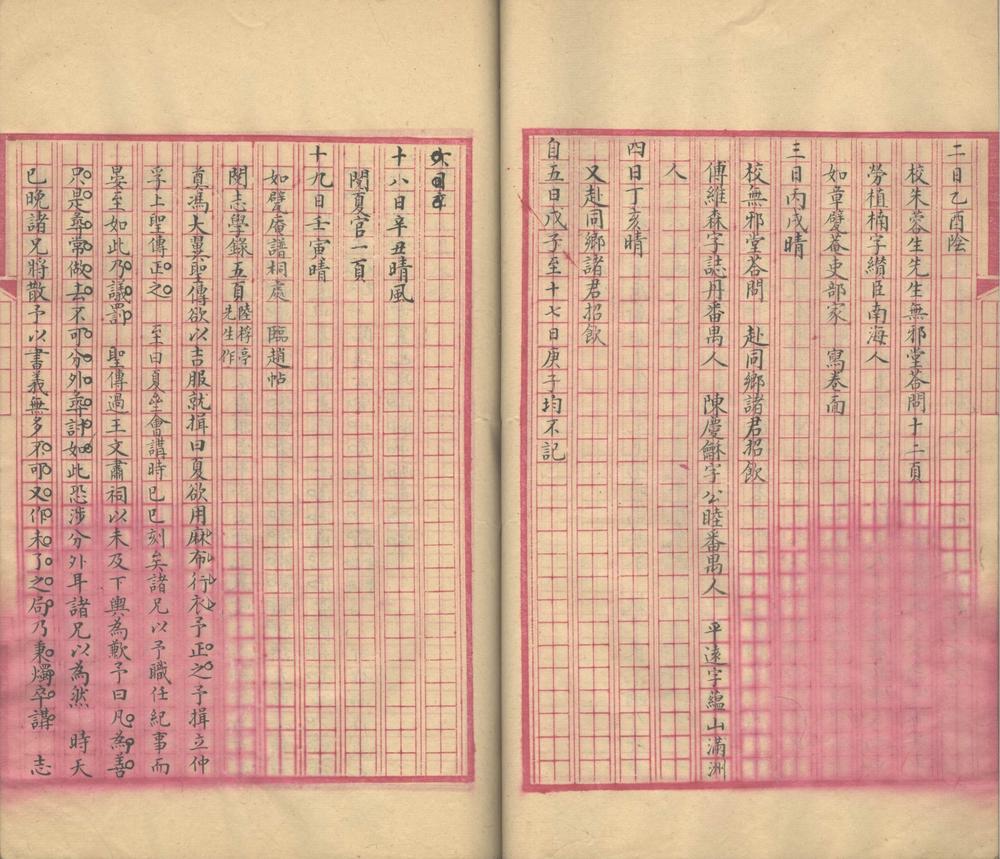 二日乙酉陰
校朱蓉生先生無邪堂荅問十二頁
勞植楠字纘臣南海人
如章璧菴吏部家　寫卷面
三日丙戌晴
校無邪堂荅問　赴同鄉諸君招飲
傅維森字誌丹番禺人　陳慶龢字公睦番禺人　平遠字蘊山滿洲
人
四日丁亥晴
又赴同鄉諸君招飲
自五日戊子至十七日庚子均不記
十八日辛丑晴風
閱夏官一頁
十九日壬寅晴
如甓庵譜桐處　臨趙帖
閱志學錄五頁陸桴亭先生作
真馮大翼聖傳欲以吉服就揖曰夏欲用麻布行衣予正之予揖立仲
孚上聖傳正之　至日夏會講時已巳刻矣諸兄以予職任紀事而
晏至如此乃議罰　聖傳過王文肅祠以未及下輿為歉予曰凡為善
只是尋常做去不可分外尋討如此恐涉分外耳諸兄以為然　時天
已晚諸兄將散予以書義無多不可又作未了之局乃秉燭卒講　志